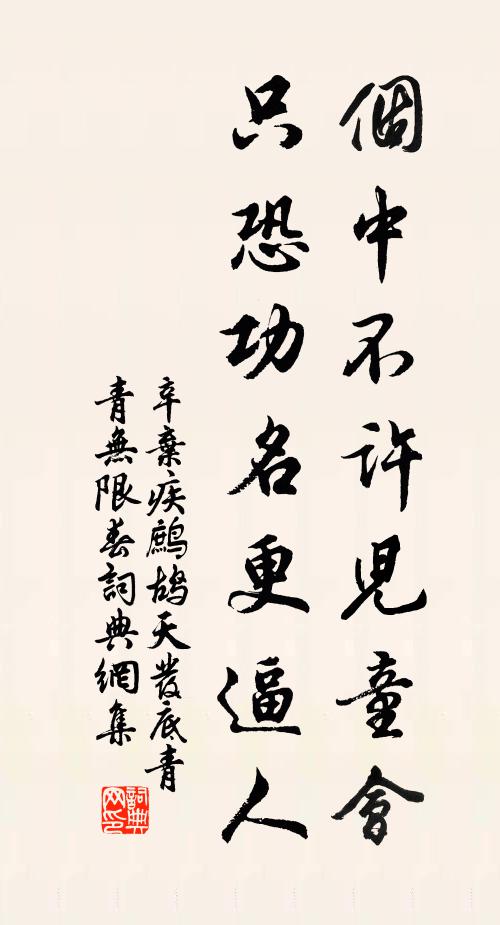 個中不許兒童會
只恐功名更逼人
辛棄疾鷓鴣天發底青
青無限春詞典網集
詞典
网印